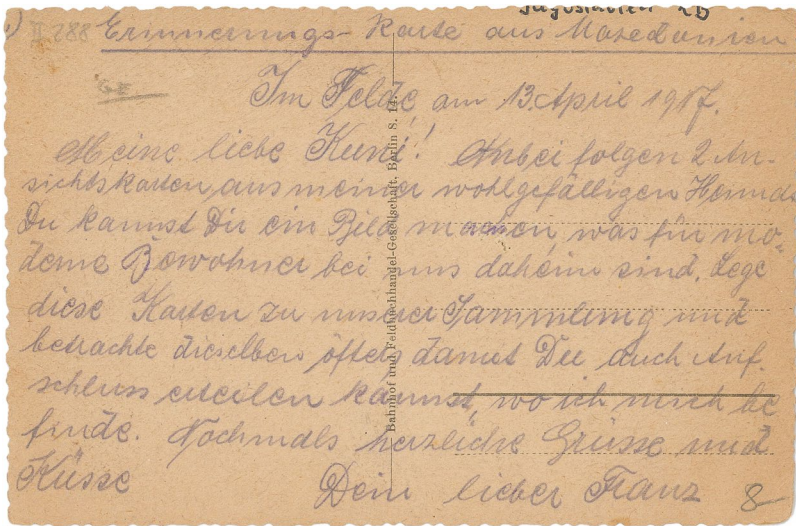 Jugoslavien
II 288 Erinnerungs-Karte aus Mazedonien
GE
Im Felde, am 13. April 1917.
Meine liebe Kuni! Anbei folgen 2 An-
sichtskarten aus meiner wohlgefälligen
Du kannst Dir ein Bild machen, was für mo-
derne Bewohner bei uns daheim sind. Lege
diese Karten zu unserer Sammlung und
betrachte dieselben öfters damit Du auch Auf-
schluss erteilen kannst, wo ich mich be
finde. Nochmals herzliche Grüsse und
Küsse
Dein lieber Franz
8-
Bahnhof und Feldbuchhandel-Gesellschaft. Berlin S. 14.